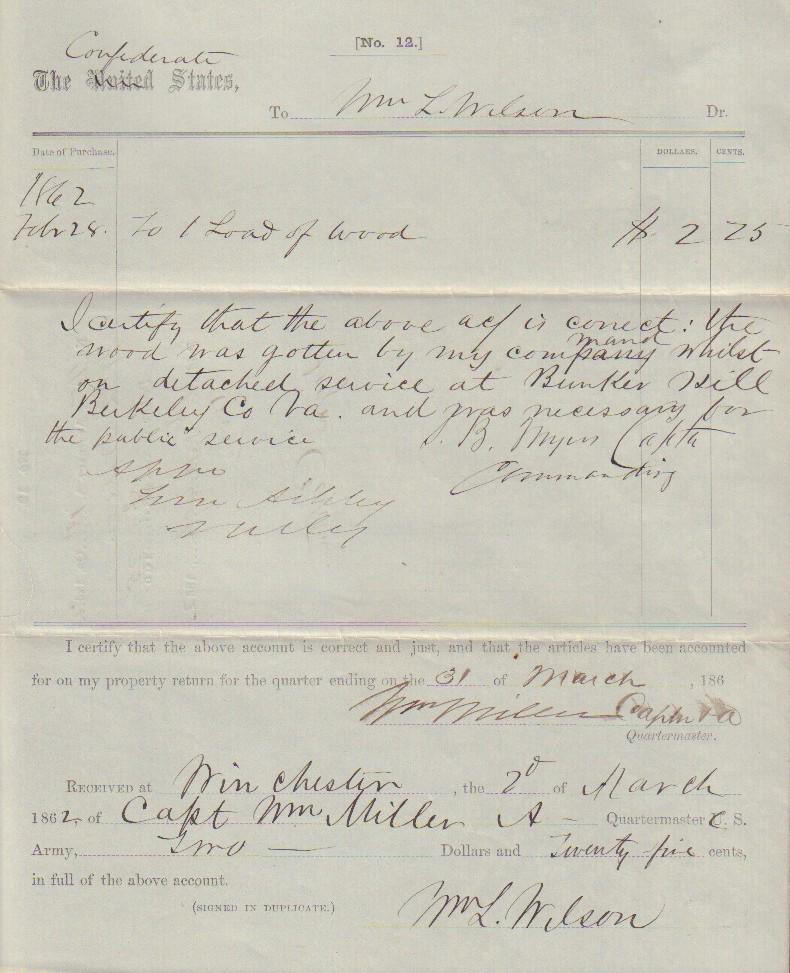 [No. 12.]
Confederate
The United States,
To Wm L. Wilson Dr.
Date of Purchase. DOLLARS. CENTS.
1862
Feb 28. To 1 Load of Wood $ 2 25
I certify that the above acf is correct: the
mand
wood was gotten by my company whilst
on detached service at Bunker Hill
Berkeley Co Va. and was necessary for
the public service B. Myers Capta
Commanding
I certify that the above account is correct and just, and that the articles have been accounted
for on my property return for the quarter ending on the 31 of March , 186
Wm Miller Capt
Quartermaster.
RECEIVED at Winchester , the 2d of March
1862, of Capt Wm Miller A — Quartermaster C. S.
Army, Two — Dollars and Twenty five cents,
in full of the above account.
(SIGNED IN DUPLICATE.)
Wm L. Wilson